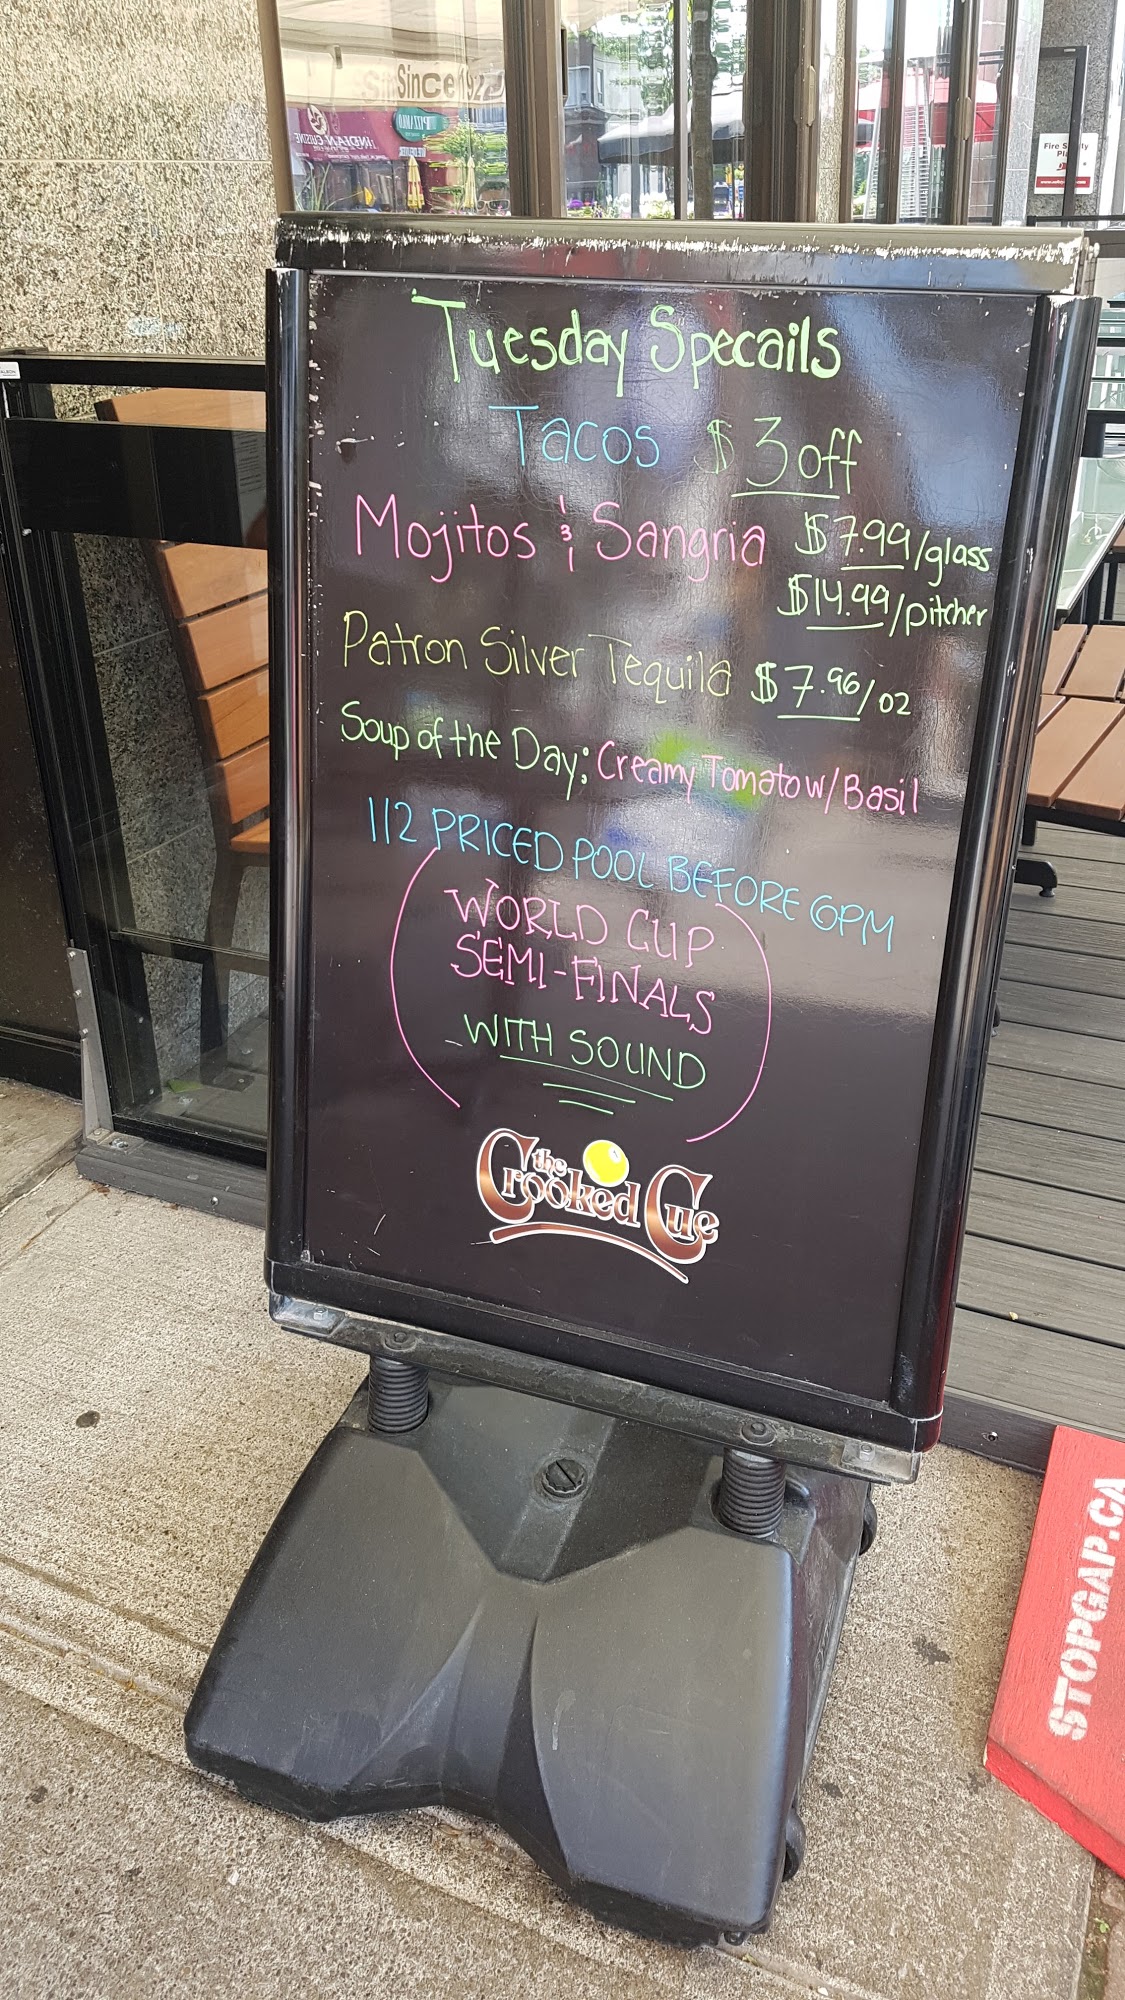 Since 192
INDIAN CUISINE
Fire S
Pl
Tuesday Specails
Tacos $3 off
Mojitos & Sangria $7.99/glass
$14.99/pitcher
Patron Silver Tequila $7.96/oz
Soup of the Day: Creamy Tomato w/Basil
1/2 PRICED POOL BEFORE 6PM
WORLD CUP
SEMI-FINALS
WITH SOUND
the Crooked Cue
STOPGAP.CA